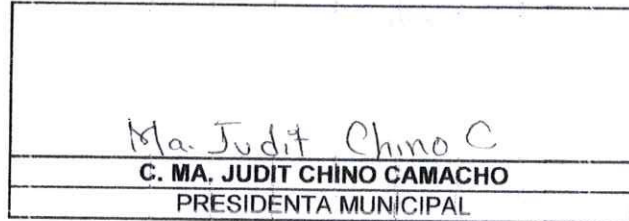 Ma. Judit Chino C
C. MA. JUDIT CHINO CAMACHO
PRESIDENTA MUNICIPAL